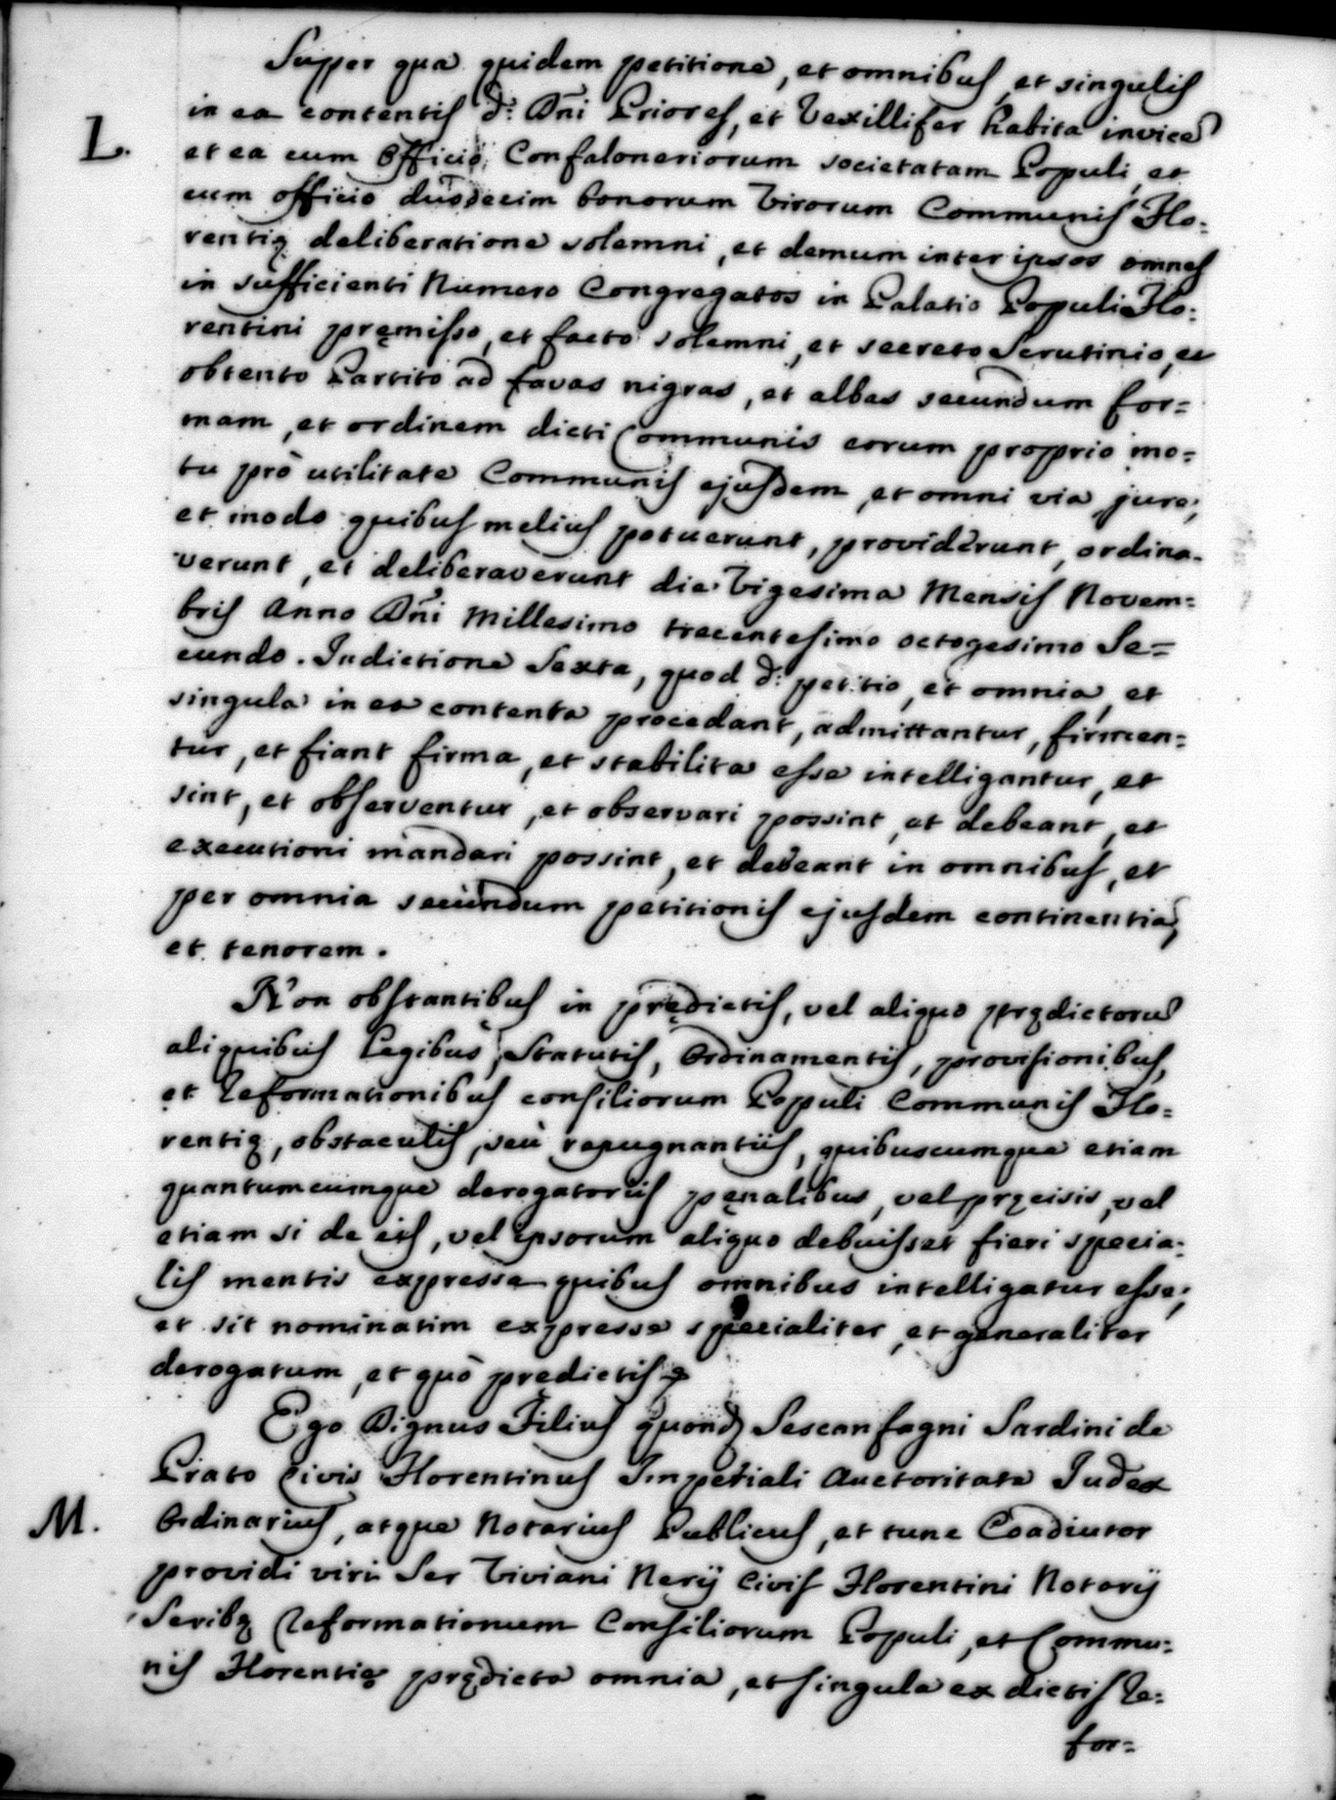 Super qua quidem petitione, et omnibus, et singulis
L.
in ea contentis d: Dñi Priores, et Vexillifer habita invice
et ea cum Officio Confaloneriorum societatam Populi, et
cum officio duodecim bonorum Virorum Communis Flo=
rentię deliberatione solemni, et demum inter ipsos omnes
in sufficienti Numero Congregatos in Palatio Populi Flo=
rentini pręmisso, et facto solemni, et secreto Scrutinio, et
obtento Partito ad favas nigras, et albas secundum for=
mam, et ordinem dicti Communis eorum proprio mo=
tu prò utilitate Communis ejusdem, et omni via, jure;
et modo quibus melius potuerunt, providerunt, ordina=
verunt, et deliberaverunt die Vigesima Mensis Novem=
bris Anno Dñi Millesimo trecentesimo octogesimo Se=
cundo. Indictione Sexta, quod d: petitio, et omnia, et
singula in ea contenta procedant, admittantur, firmen=
tur, et fiant firma, et stabilita esse intelligantur, et
sint, et observentur, et observari possint, et debeant, et
executioni mandari possint, et debeant in omnibus, et
per omnia secundum petitionis ejusdem continentia,
et tenorem.
Non obstantibus in prędictis, vel aliquo prędictoru
aliquibus Legibus, Statutis, Ordinamentis, provisionibus,
et Reformationibus consiliorum Populi Communis Flo=
rentię, obstaculis, seù repugnantiis, quibuscumque etiam
quantumcumque derogatoriis pęnalibus, vel pręcisis, vel
etiam si de eis, vel ipsorum aliquo debuisset fieri specia=
lis mentis expressa quibus omnibus intelligatur esse;
et sit nominatim expresse specialiter, et generaliter
derogatum, et quò prędictis
Ego Dignus Filius quond Sescanfagni Sardini de
Prato Civis Florentinus Imperiali Auctoritate Judex
M.
Ordinarius, atque Notarius Publicus, et tunc Coadiutor
providi viri Ser Viviani Nerij Civis Florentini Notarij
Scribę Reformationum Consiliorum Populi, et Commu=
nis Florentię prędicta omnia, et singula ex dictis Re=
for=